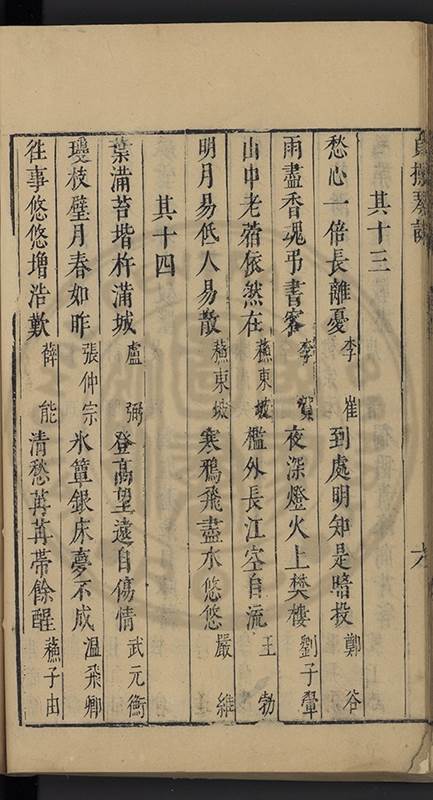 其十三
愁心一倍長離憂 李 崔 到處明知是暗投 鄭 谷
雨盡香魂弔書客 李 賀 夜深燈火上樊樓 劉子翬
山中老宿依然在 蘇東坡 檻外長江空自流 王 勃
明月易低人易散 蘇東坡 寒鴉飛盡水悠悠 嚴 維
其十四
葉滿苔堦杵滿城 盧 弼 登高望遠自傷情 武元衡
瓊枝璧月春如昨 張仲宗 氷簟銀床夢不成 溫飛卿
徃事悠悠增浩歎 薛 能 清愁苒苒帶餘酲 蘇子由